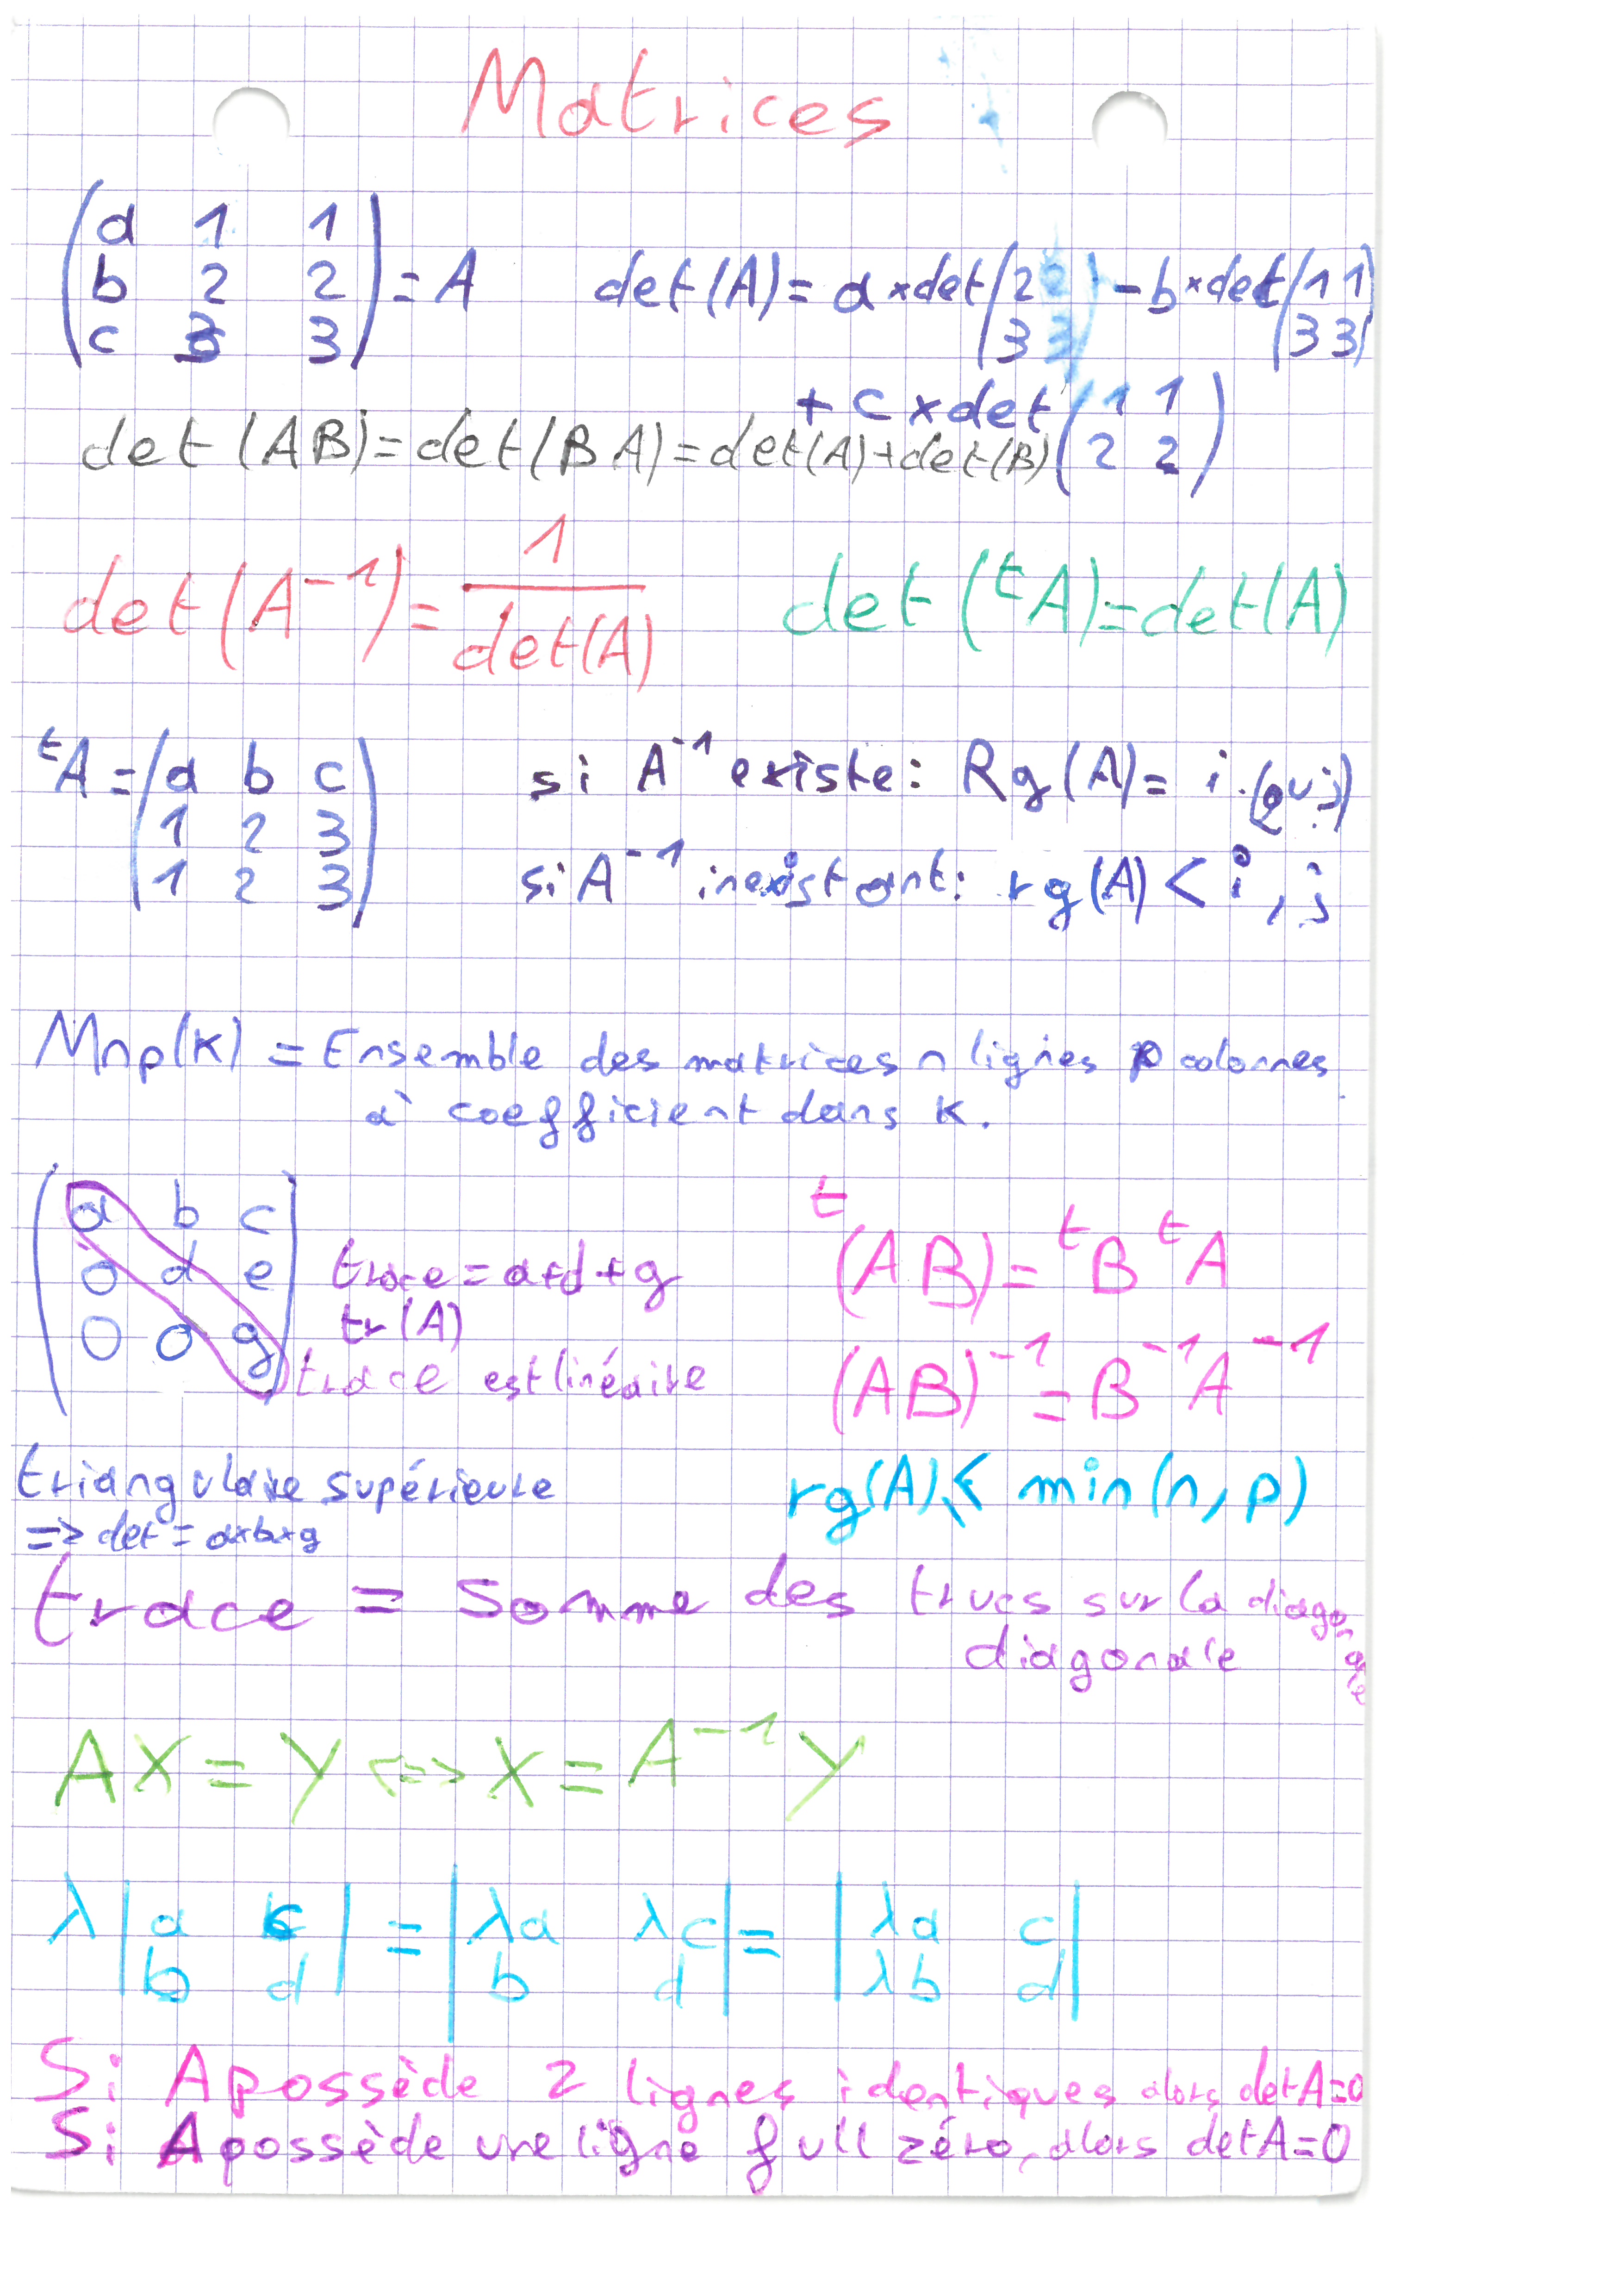 Matrices
(a 1 1
b 2 2
c 3 3) = A
det(A) = a × det(2 2
3 3) - b × det(1 1
3 3)
+ c × det(1 1
2 2)
det(AB) = det(BA) = det(A) + det(B)
det(A⁻¹) = 1/det(A)
det(ᵗA) = det(A)
ᵗA = (a b c
1 2 3
1 2 3)
si A⁻¹ existe : Rg(A) = i (ou j)
si A⁻¹ inexistant : rg(A) < i, j
Mnp(K) = Ensemble des matrices n lignes p colonnes
à coefficient dans K.
(a b c
0 d e
0 0 g)
trace = a+d+g
tr(A)
trace est linéaire
ᵗ(AB) = ᵗB ᵗA
(AB)⁻¹ = B⁻¹A⁻¹
triangulaire supérieure
=> det = a×b×g
rg(A) ≤ min(n, p)
trace = somme des trucs sur la diagonale
diagonale
AX = Y <=> X = A⁻¹Y
λ |a c
b d| = |λa λc
b d| = |λa c
λb d|
Si A possède 2 lignes identiques alors det A=0
Si A possède une ligne full zéro, alors det A=0